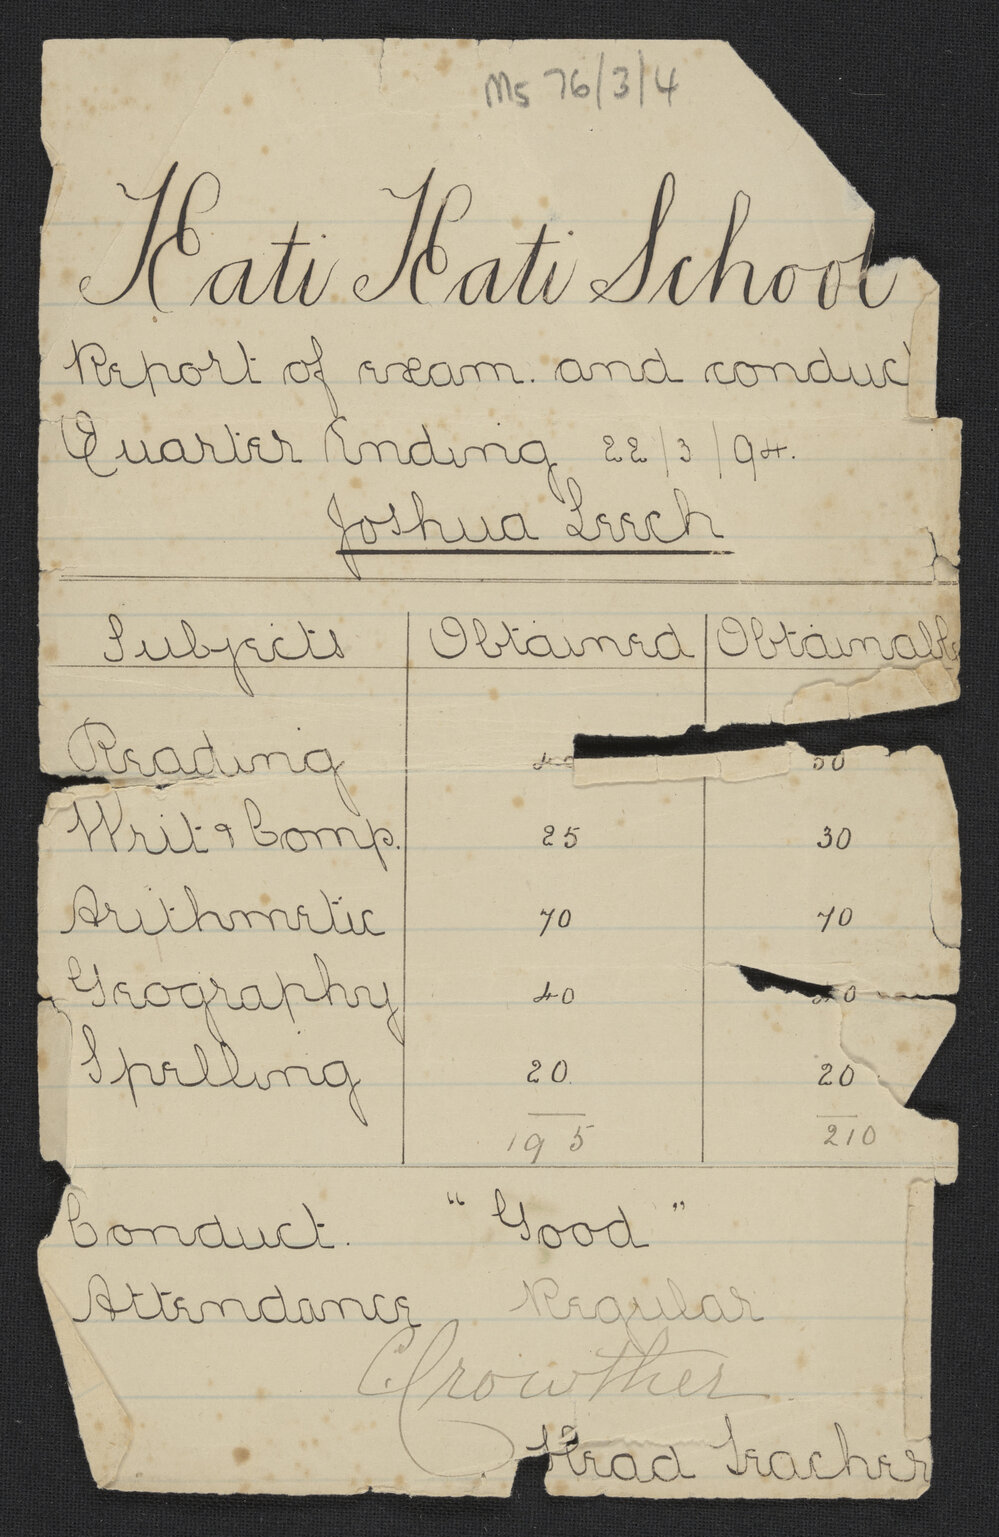 Ms 76/3/4
Kati Kati School
Report of exam. and conduct
Quarter Ending 22/3/94.
Joshua Leech
Subjects Obtained Obtainable
Reading 40 50
Writ & Comp. 25 30
Arithmetic 70 70
Geography 40 40
Spelling 20 20
195 210
Conduct. "Good"
Attendance Regular
C Crowther
Head Teacher